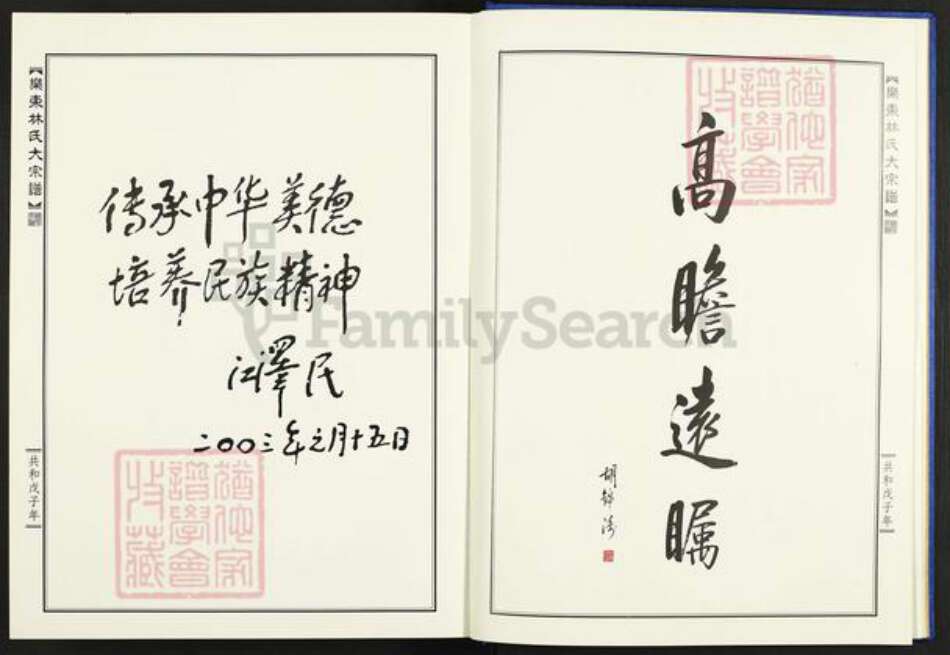 【樂東林氏大宗譜】
共和戊子年
传承中华美德
培养民族精神
江澤民
二〇〇三年之月十五日
猶他家
譜學會
收藏
FamilySearch
高瞻遠瞩
胡锦涛
猶他家
譜學會
收藏
【樂東林氏大宗譜】
共和戊子年